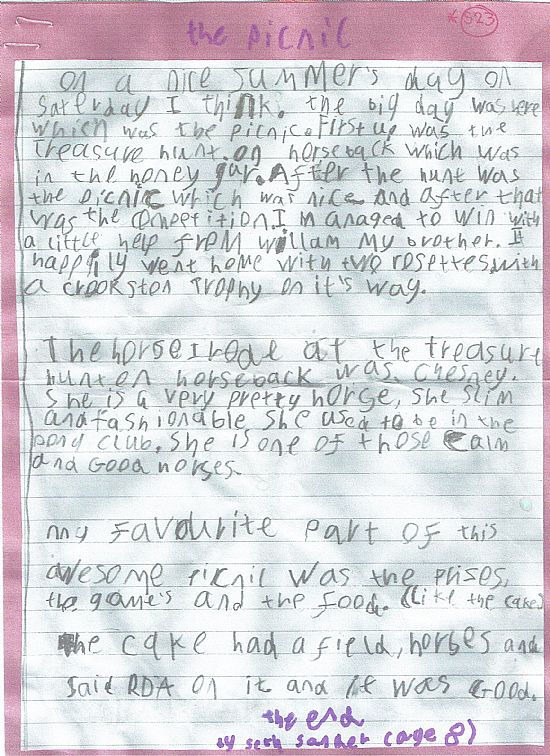 523
the picnic
on a nice summer's day on
Saterday I think. the big day was here
which was the picnic. First up was the
treasure hunt. on horseback which was
in the honey jar. After the hunt was
the picnic which was nice and after that
was the competition I managed to win with
a little help from willam my brother. I
happily went home with two rosettes with
a crookston Trophy on it's way.
The horse I rode at the treasure
hunt on horseback was Chesney.
She is a very pretty horse, she slim
and fashionable she used to be in the
pony club. She is one of those calm
and Good horses.
my favourite part of this
awesome picnic was the prises,
the game's and the food. (like the cake)
the cake had a field, horses and
said RDA on it and it was Good.
the end
by seth (age 8)